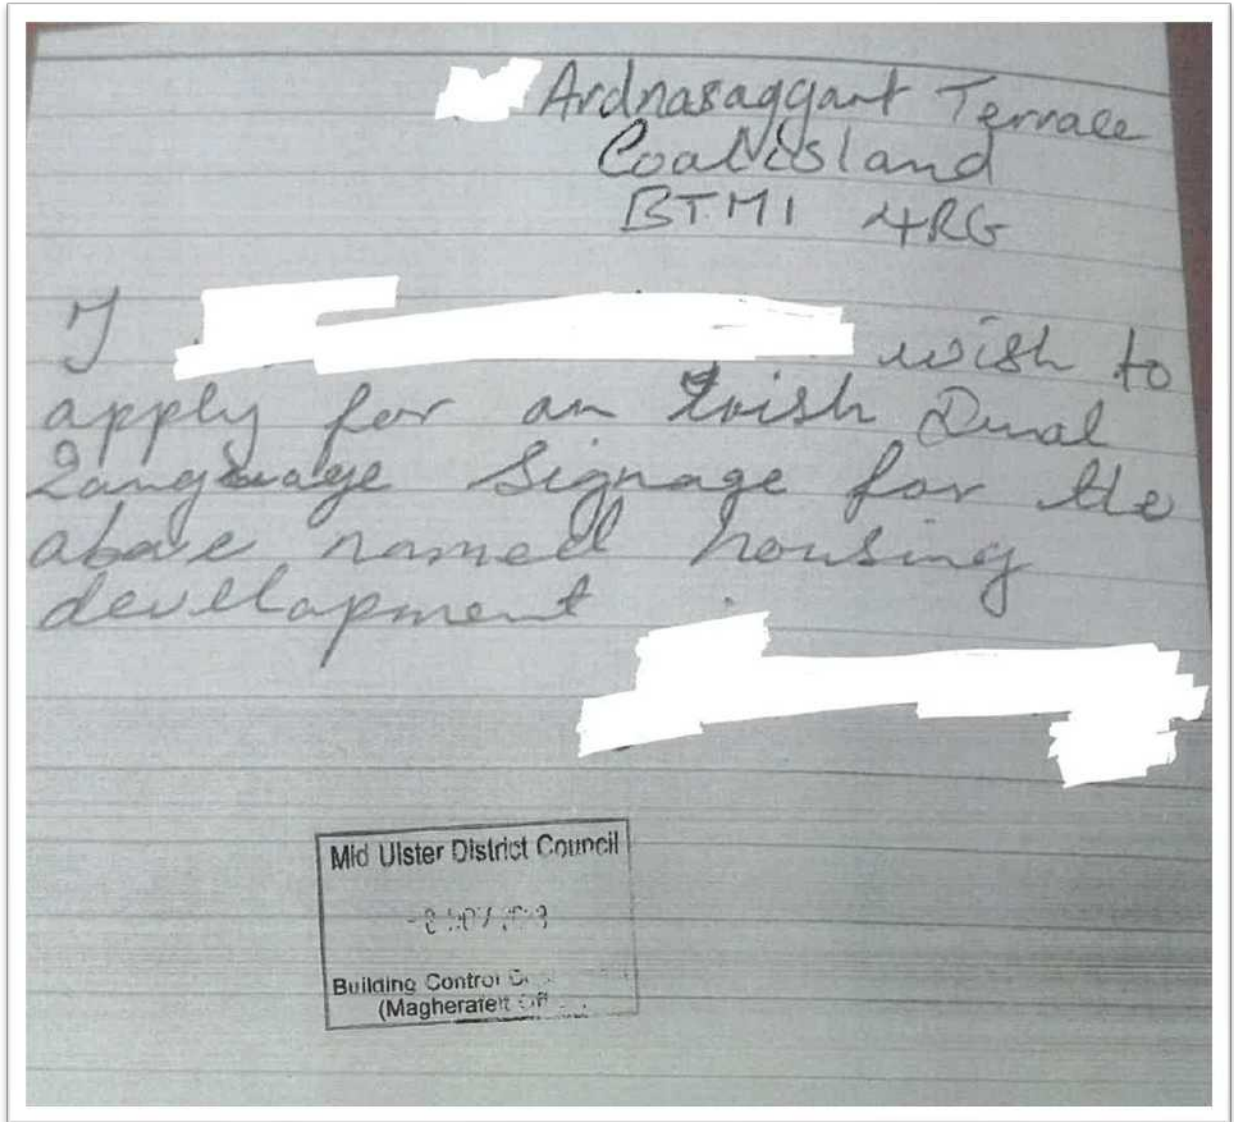 Ardnasaggart Terrace
Coalisland
BTM1 4RG
I
wish to
apply for an Irish Dual
Language Signage for the
above named housing
development .
Mid Ulster District Council
Building Control
(Magherafelt